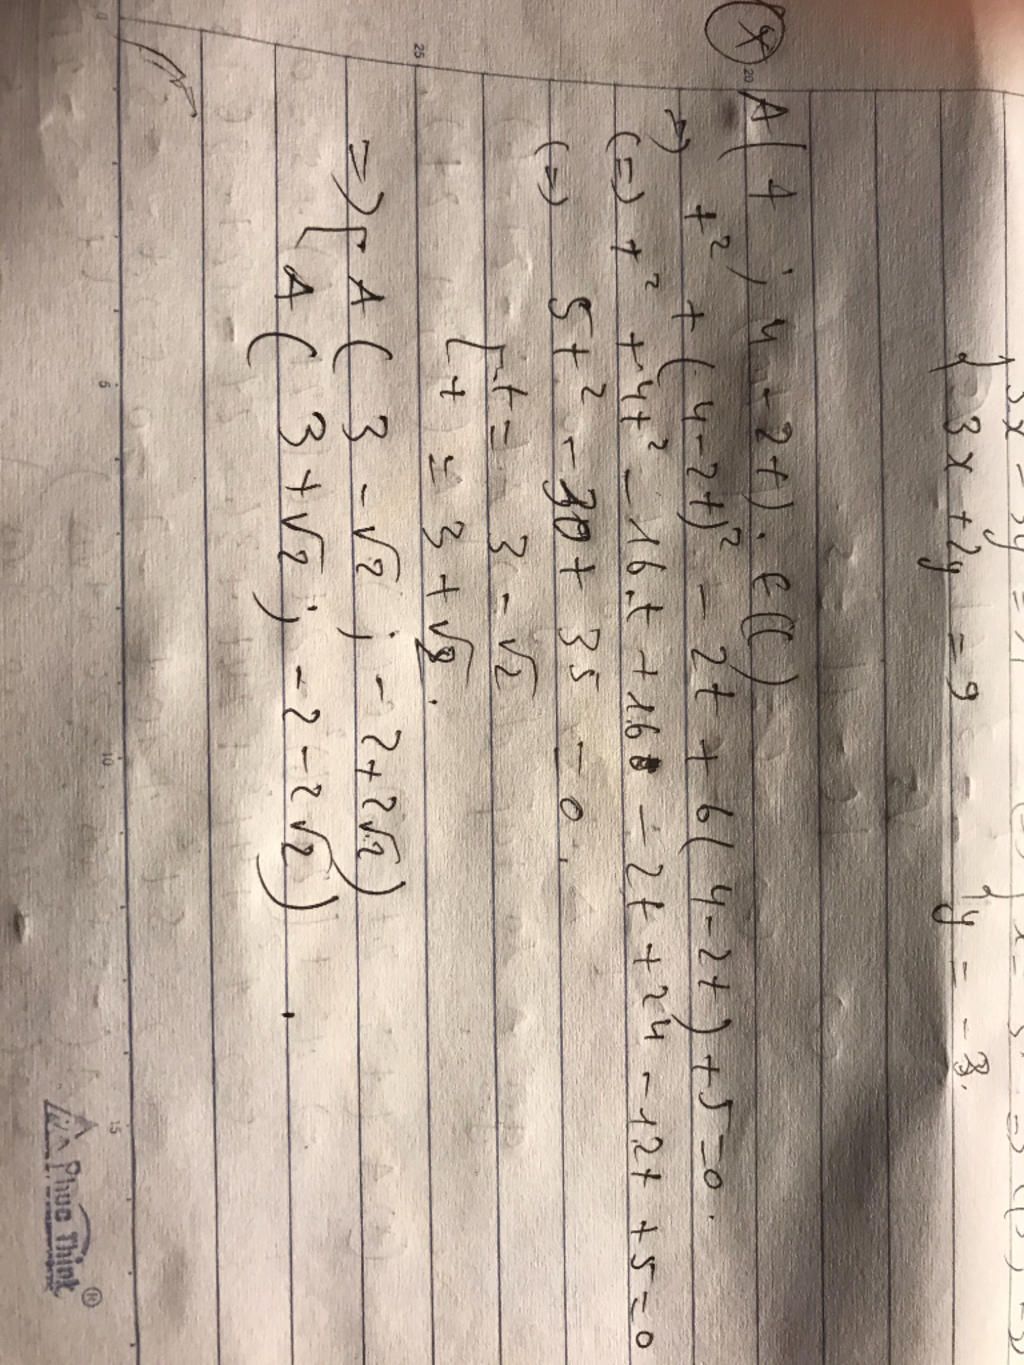 3x + 2y = 9
y = -3.
④
A(t; 4-2t). ∈ (C)
=) t² + (4-2t)² - 2t + 6(4-2t) + 5 = 0.
(=) t² + 4t² - 16.t + 16 - 2t + 24 - 12t + 5 = 0
(=) 5t² - 30t + 35 = 0.
[ t = 3 - √2
t = 3 + √2.
=) [ A (3 - √2; -2 + 2√2)
A (3 + √2; -2 - 2√2).
20
25
5
10
15
Phuc Think ®